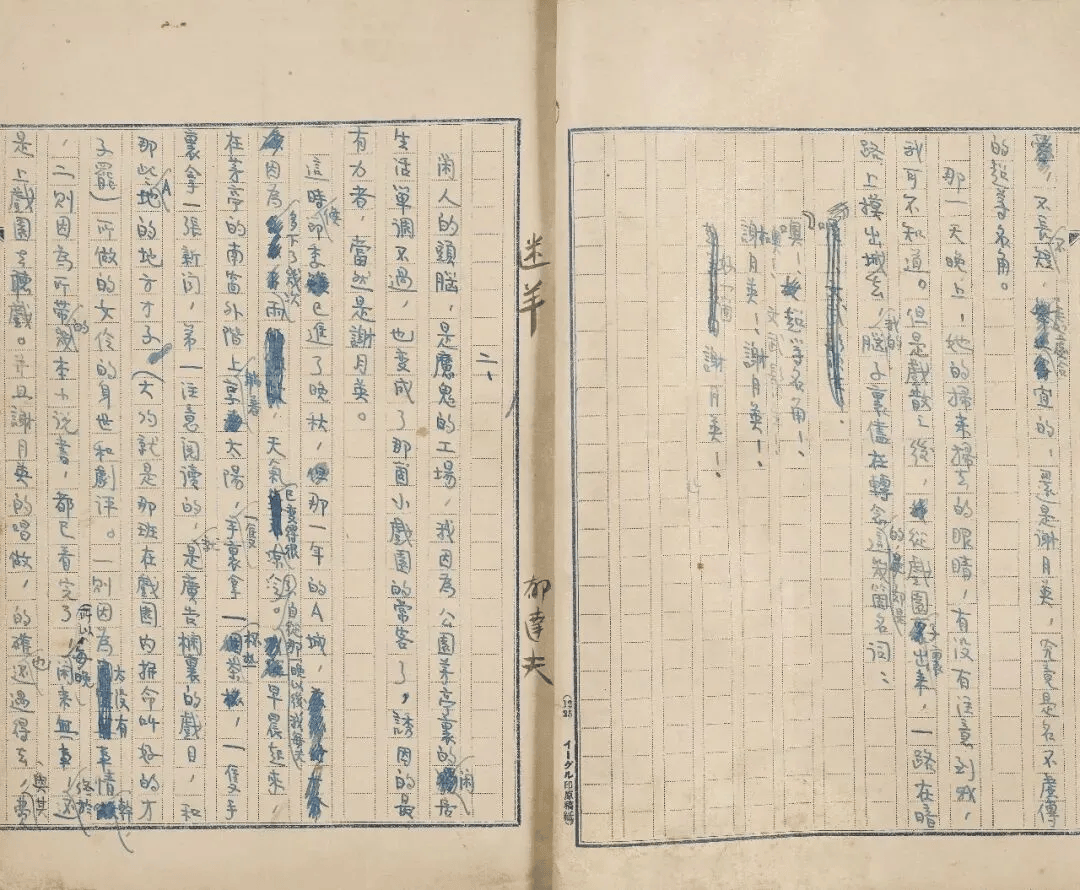 不長短，
宜的，還是謝月英，究竟是名不虛傳
的超等名角。
那一天晚上，她的掃來掃去的眼睛，有沒有注意到我，
我可不知道。但是戲散之後，從戲園子裏出來，一路在暗
路上摸出城去，我的腦子裏儘在轉念這幾個名詞：
噢！超等名角！
謝月英！謝月英！
好一個謝月英！
迷羊
郁達夫
イーグル印原稿紙
二、
閑人的頭腦，是魔鬼的工場，我因為公園茅亭裏的閑居
生活單調不過，也變成了那個小戲園的常客了，誘因的最
有力者，當然是謝月英。
這時候節季已進了晚秋，那一年的A城，
因為多下了幾次雨，天氣已變得很涼冷了。自從那一晚以後，我每天早晨起來，
在茅亭的南窗外階上躺着享太陽，一隻手裏拿一杯茶，一隻手
裏拿一張新聞，第一注意閱讀的，是廣告欄裏的戲目，和
那些A地的地方才子（大約就是那班在戲園內拚命叫好的才
子罷）所做的女伶的身世和劇評。一則因為太沒有事情幹
，二則因為所帶的幾本小說書，都已看完了，所以每晚閑來無事，終於還
是上戲園去聽戲。並且謝月英的唱做，的確也還過得去，與其